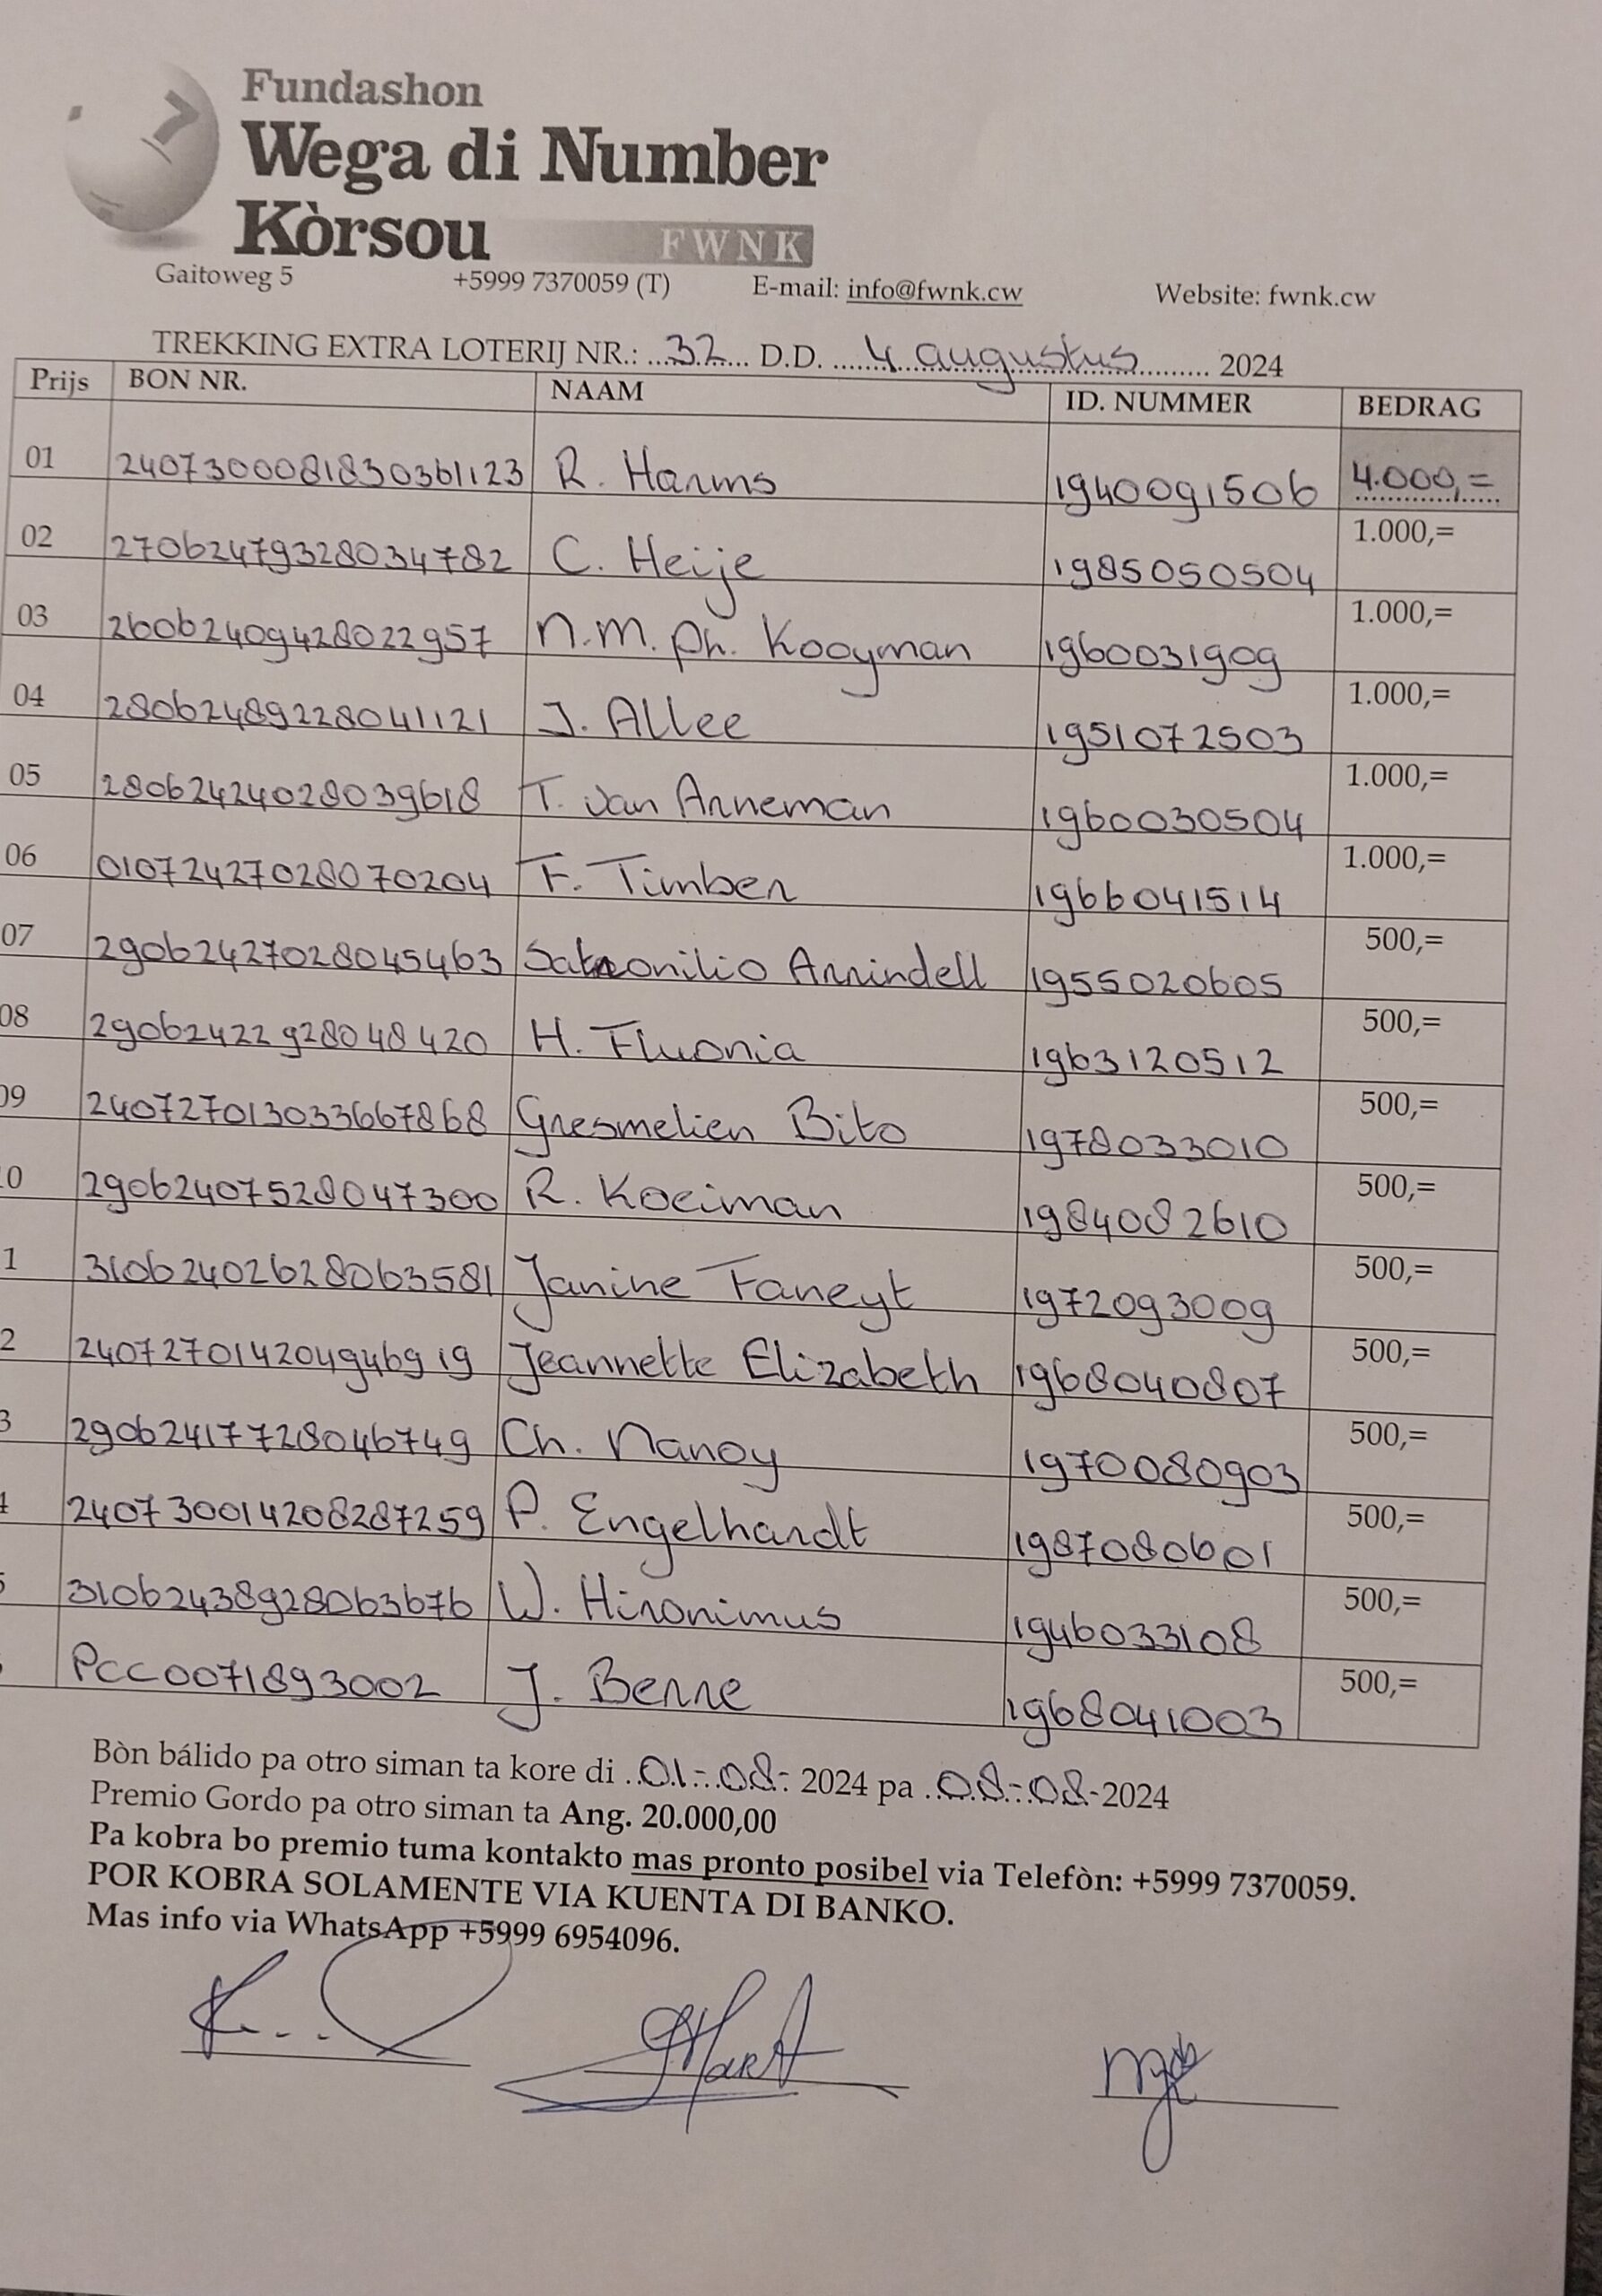 Fundashon
Wega di Number
Kòrsou FWNK
Gaitoweg 5 +5999 7370059 (T) E-mail: info@fwnk.cw Website: fwnk.cw
TREKKING EXTRA LOTERIJ NR.: 32 D.D. 4 augustus 2024
Prijs BON NR. NAAM ID. NUMMER BEDRAG
01 2407300081830361123 R. Harms 1940091506 4.000,=
02 27062479328034782 C. Heije 1985050504 1.000,=
03 26062409428022957 N.M. Ph. Kooyman 1960031909 1.000,=
04 28062489228041121 J. Allee 1951072503 1.000,=
05 28062424028039618 T. van Arneman 1960030504 1.000,=
06 01072427028070204 F. Timber 1966041514 1.000,=
07 29062427028045463 Arrindell 1955020605 500,=
08 29062422928048420 H. Fluonia 1963120512 500,=
09 240727013033667868 Gresmelien Bito 1978033010 500,=
10 29062407528047300 R. Koeiman 1984082610 500,=
1 31062402628063581 Janine Faneyt 1972093009 500,=
2 2407270142049469 19 Jeannette Elizabeth 1968040807 500,=
3 29062417728046749 Ch. Nanoy 1970080903 500,=
4 240730014208287259 P. Engelhardt 1987080601 500,=
5 31062438928063676 W. Hironimus 1946033108 500,=
PCC0071893002 J. Berre 1968041003 500,=
Bòn bálido pa otro siman ta kore di 01-08- 2024 pa 08-08-2024
Premio Gordo pa otro siman ta Ang. 20.000,00
Pa kobra bo premio tuma kontakto mas pronto posibel via Telefòn: +5999 7370059.
POR KOBRA SOLAMENTE VIA KUENTA DI BANKO.
Mas info via WhatsApp +5999 6954096.